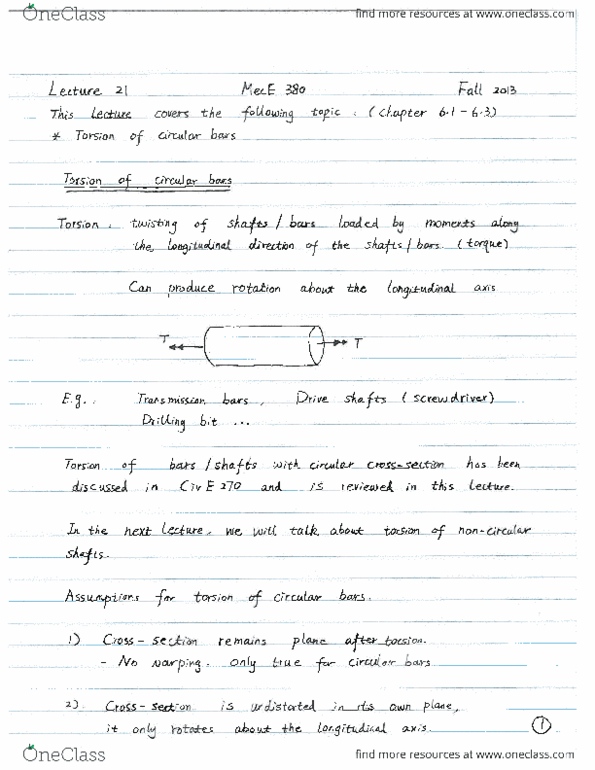 OneClass
find more resources at www.oneclass.com
Lecture 21 MecE 380 Fall 2013
This Lecture covers the following topic : (Chapter 6.1 - 6.3)
* Torsion of circular bars
Torsion of circular bars
Torsion : twisting of shafts / bars loaded by moments along
the longitudinal direction of the shafts / bars. (torque)
Can produce rotation about the longitudinal axis
T T
E.g. : Transmission bars, Drive shafts (screwdriver)
Drilling bit ...
Torsion of bars / shafts with circular cross-section has been
discussed in Civ E 270 and is reviewed in this lecture.
In the next lecture, we will talk about torsion of non-circular
shafts.
Assumptions for torsion of circular bars.
1) Cross-section remains plane after torsion.
- No warping. only true for circular bars
2) Cross-section is undistorted in its own plane,
it only rotates about the longitudinal axis.
1
OneClass
find more resources at www.oneclass.com